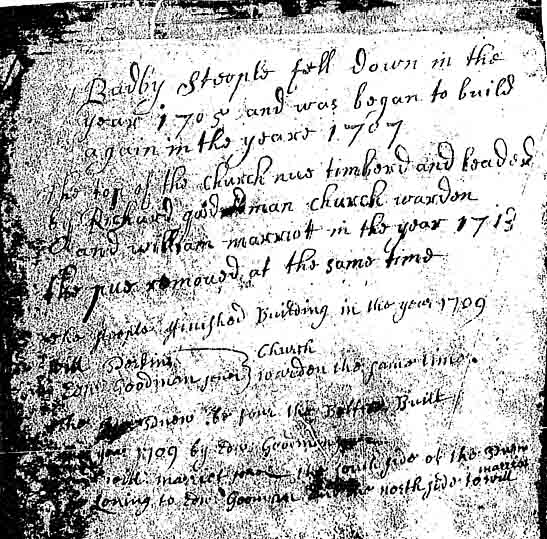 Badby Steople fell down in the
year 1705 and was began to build
again in the yeare 1707
the top of the Church nue timberd and leaded
by Richard goodman church warden
and william marriott in the year 1713
the pue removed at the same time
the steople ffinished Building in the year 1709
will
Church
Edw Goodman warden the same time.
the be four the Built
year 1709 by Edw Goodman
will marriot the south side of the
to Edw Goodman the north side to will
marriot